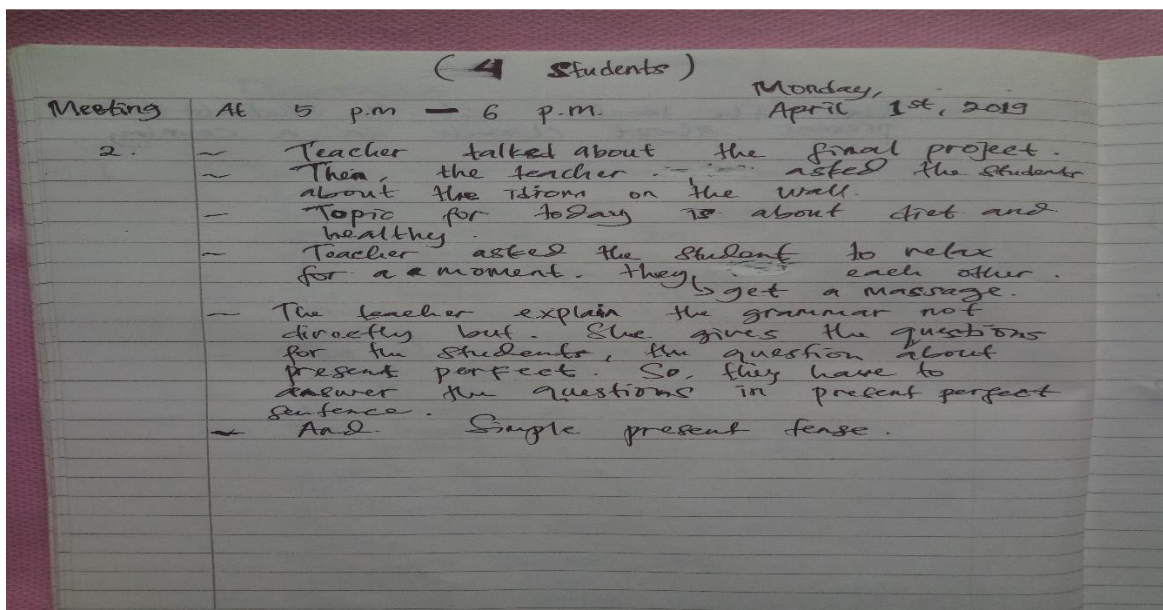 (4 Students)
Monday,
Meeting At 5 p.m — 6 p.m. April 1st, 2019
2. — Teacher talked about the final project.
— Then, the teacher asked the students
about the idiom on the wall.
— Topic for today is about diet and
healthy.
— Teacher asked the student to relax
for a moment. they each other.
↳ get a massage.
— The teacher explain the grammar not
directly but. She gives the questions
for the students, the question about
present perfect. So, they have to
answer the questions in present perfect
sentence.
— And. Simple present tense.